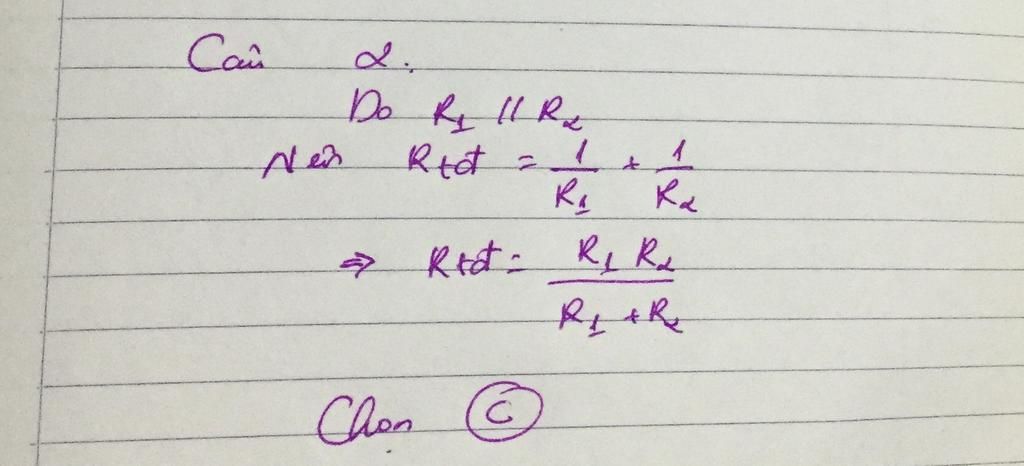 Câu 2.
Do R₁ // R₂
Nên Rtđ = 1/R₁ + 1/R₂
⇒ Rtđ = R₁ R₂ / R₁ + R₂
Chọn C